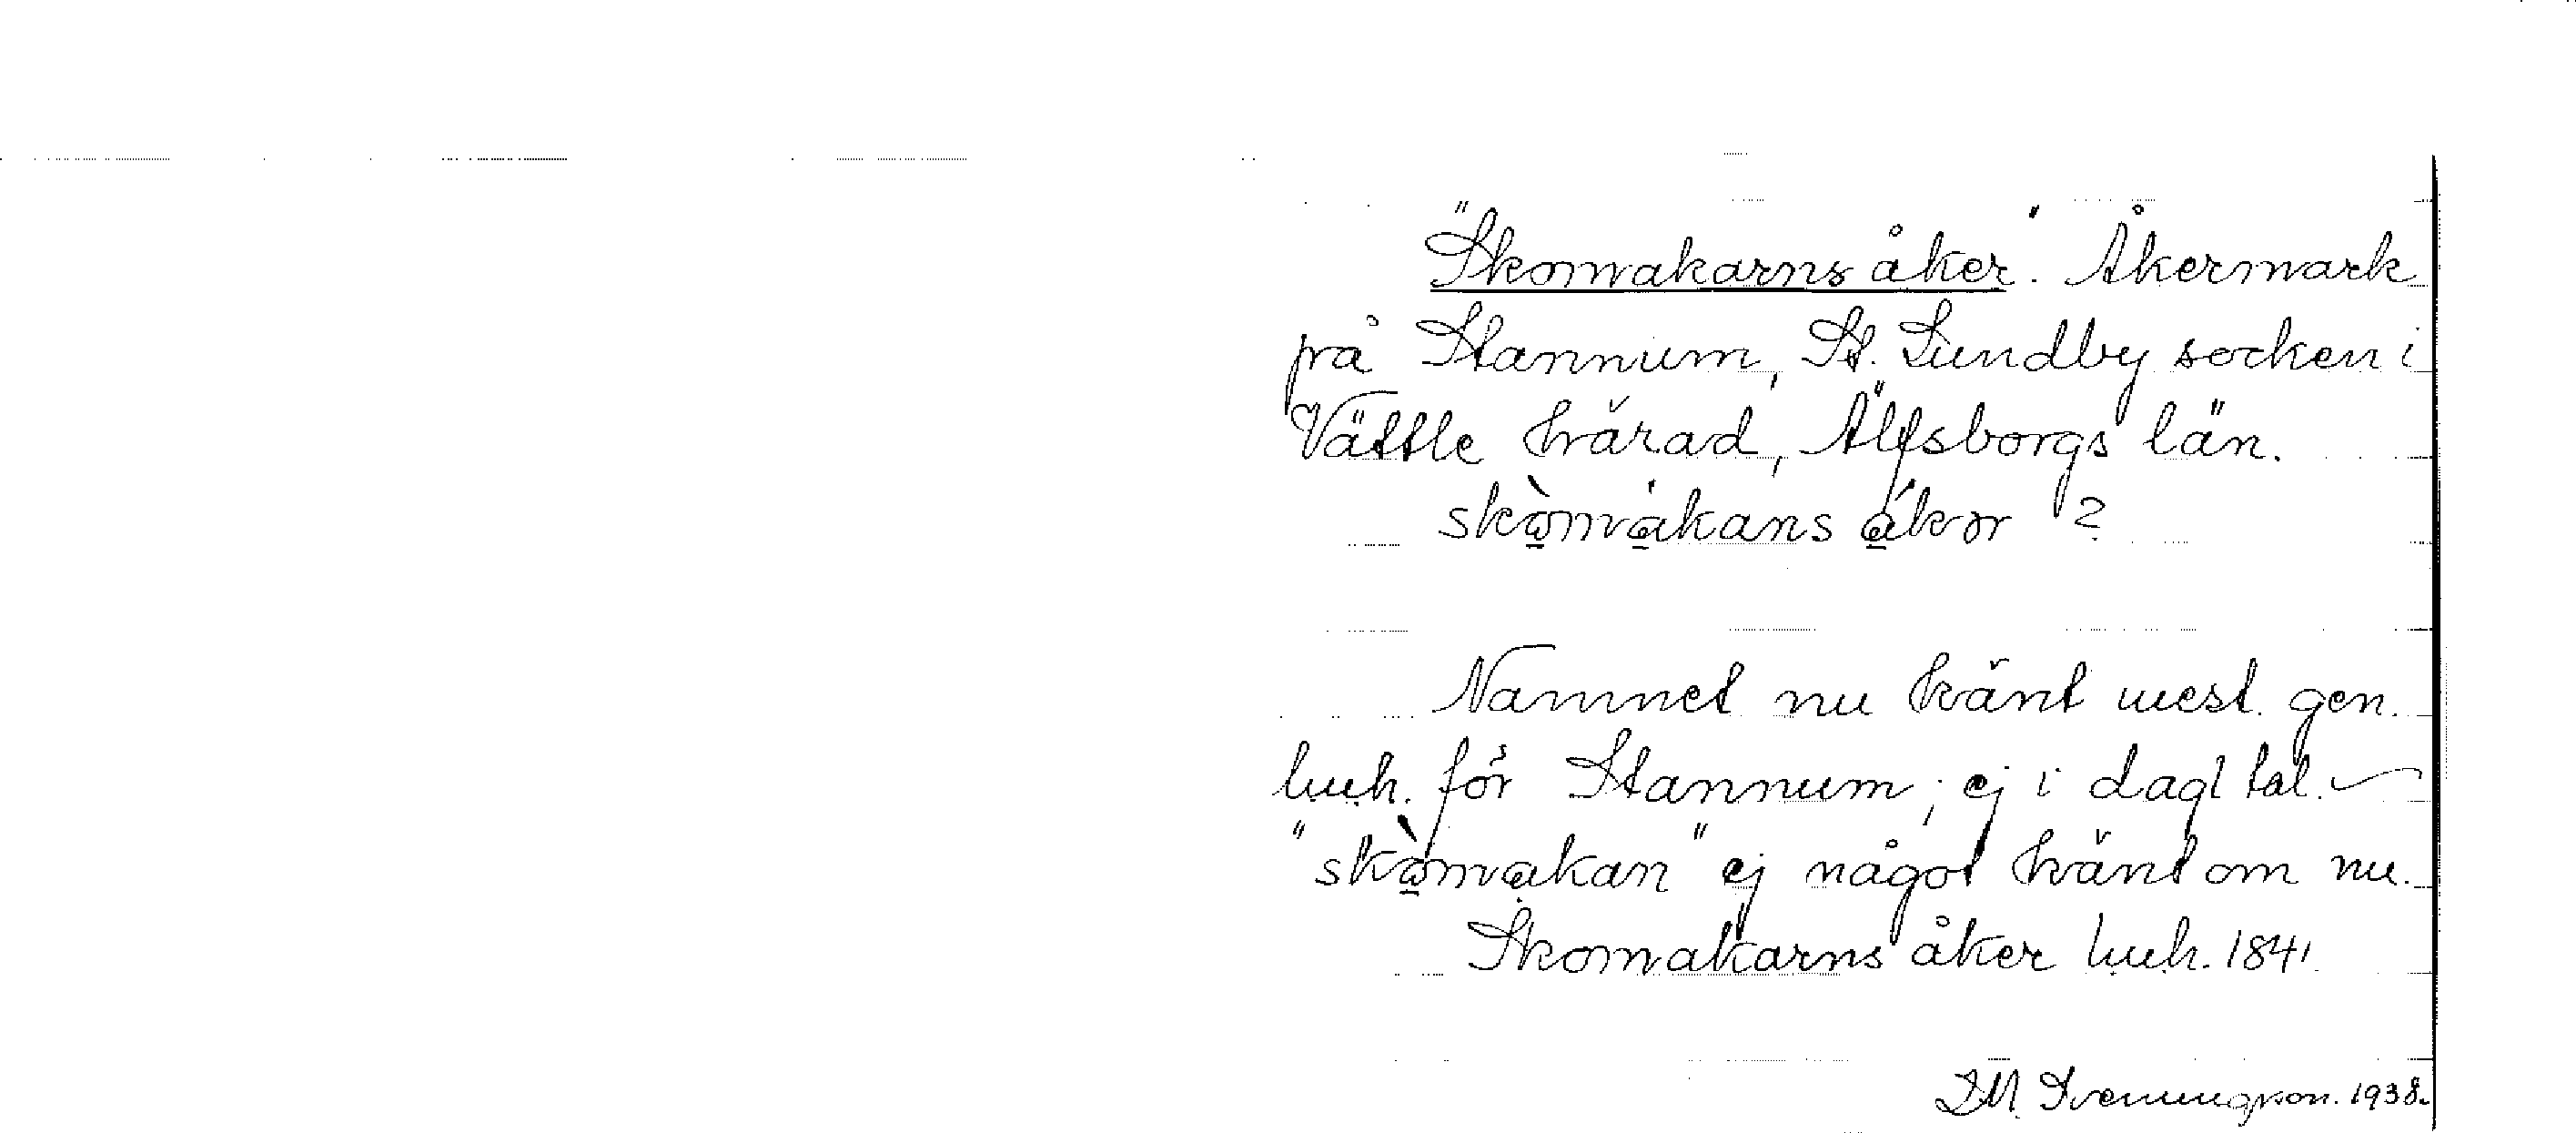 "Skomakarns åker". Åkermark
på Stannum, St. Lundby socken i
Vättle härad, Älfsborgs län.
skò̱ma̱kans á̱kər ?
Namnet nu känt mest gen.
luh. för Stannum; ej i dagl tal. –
"skò̱makan" ej något känt om nu.
Skomakarns åker luh. 1841
D.M. Svenungsson. 1938.